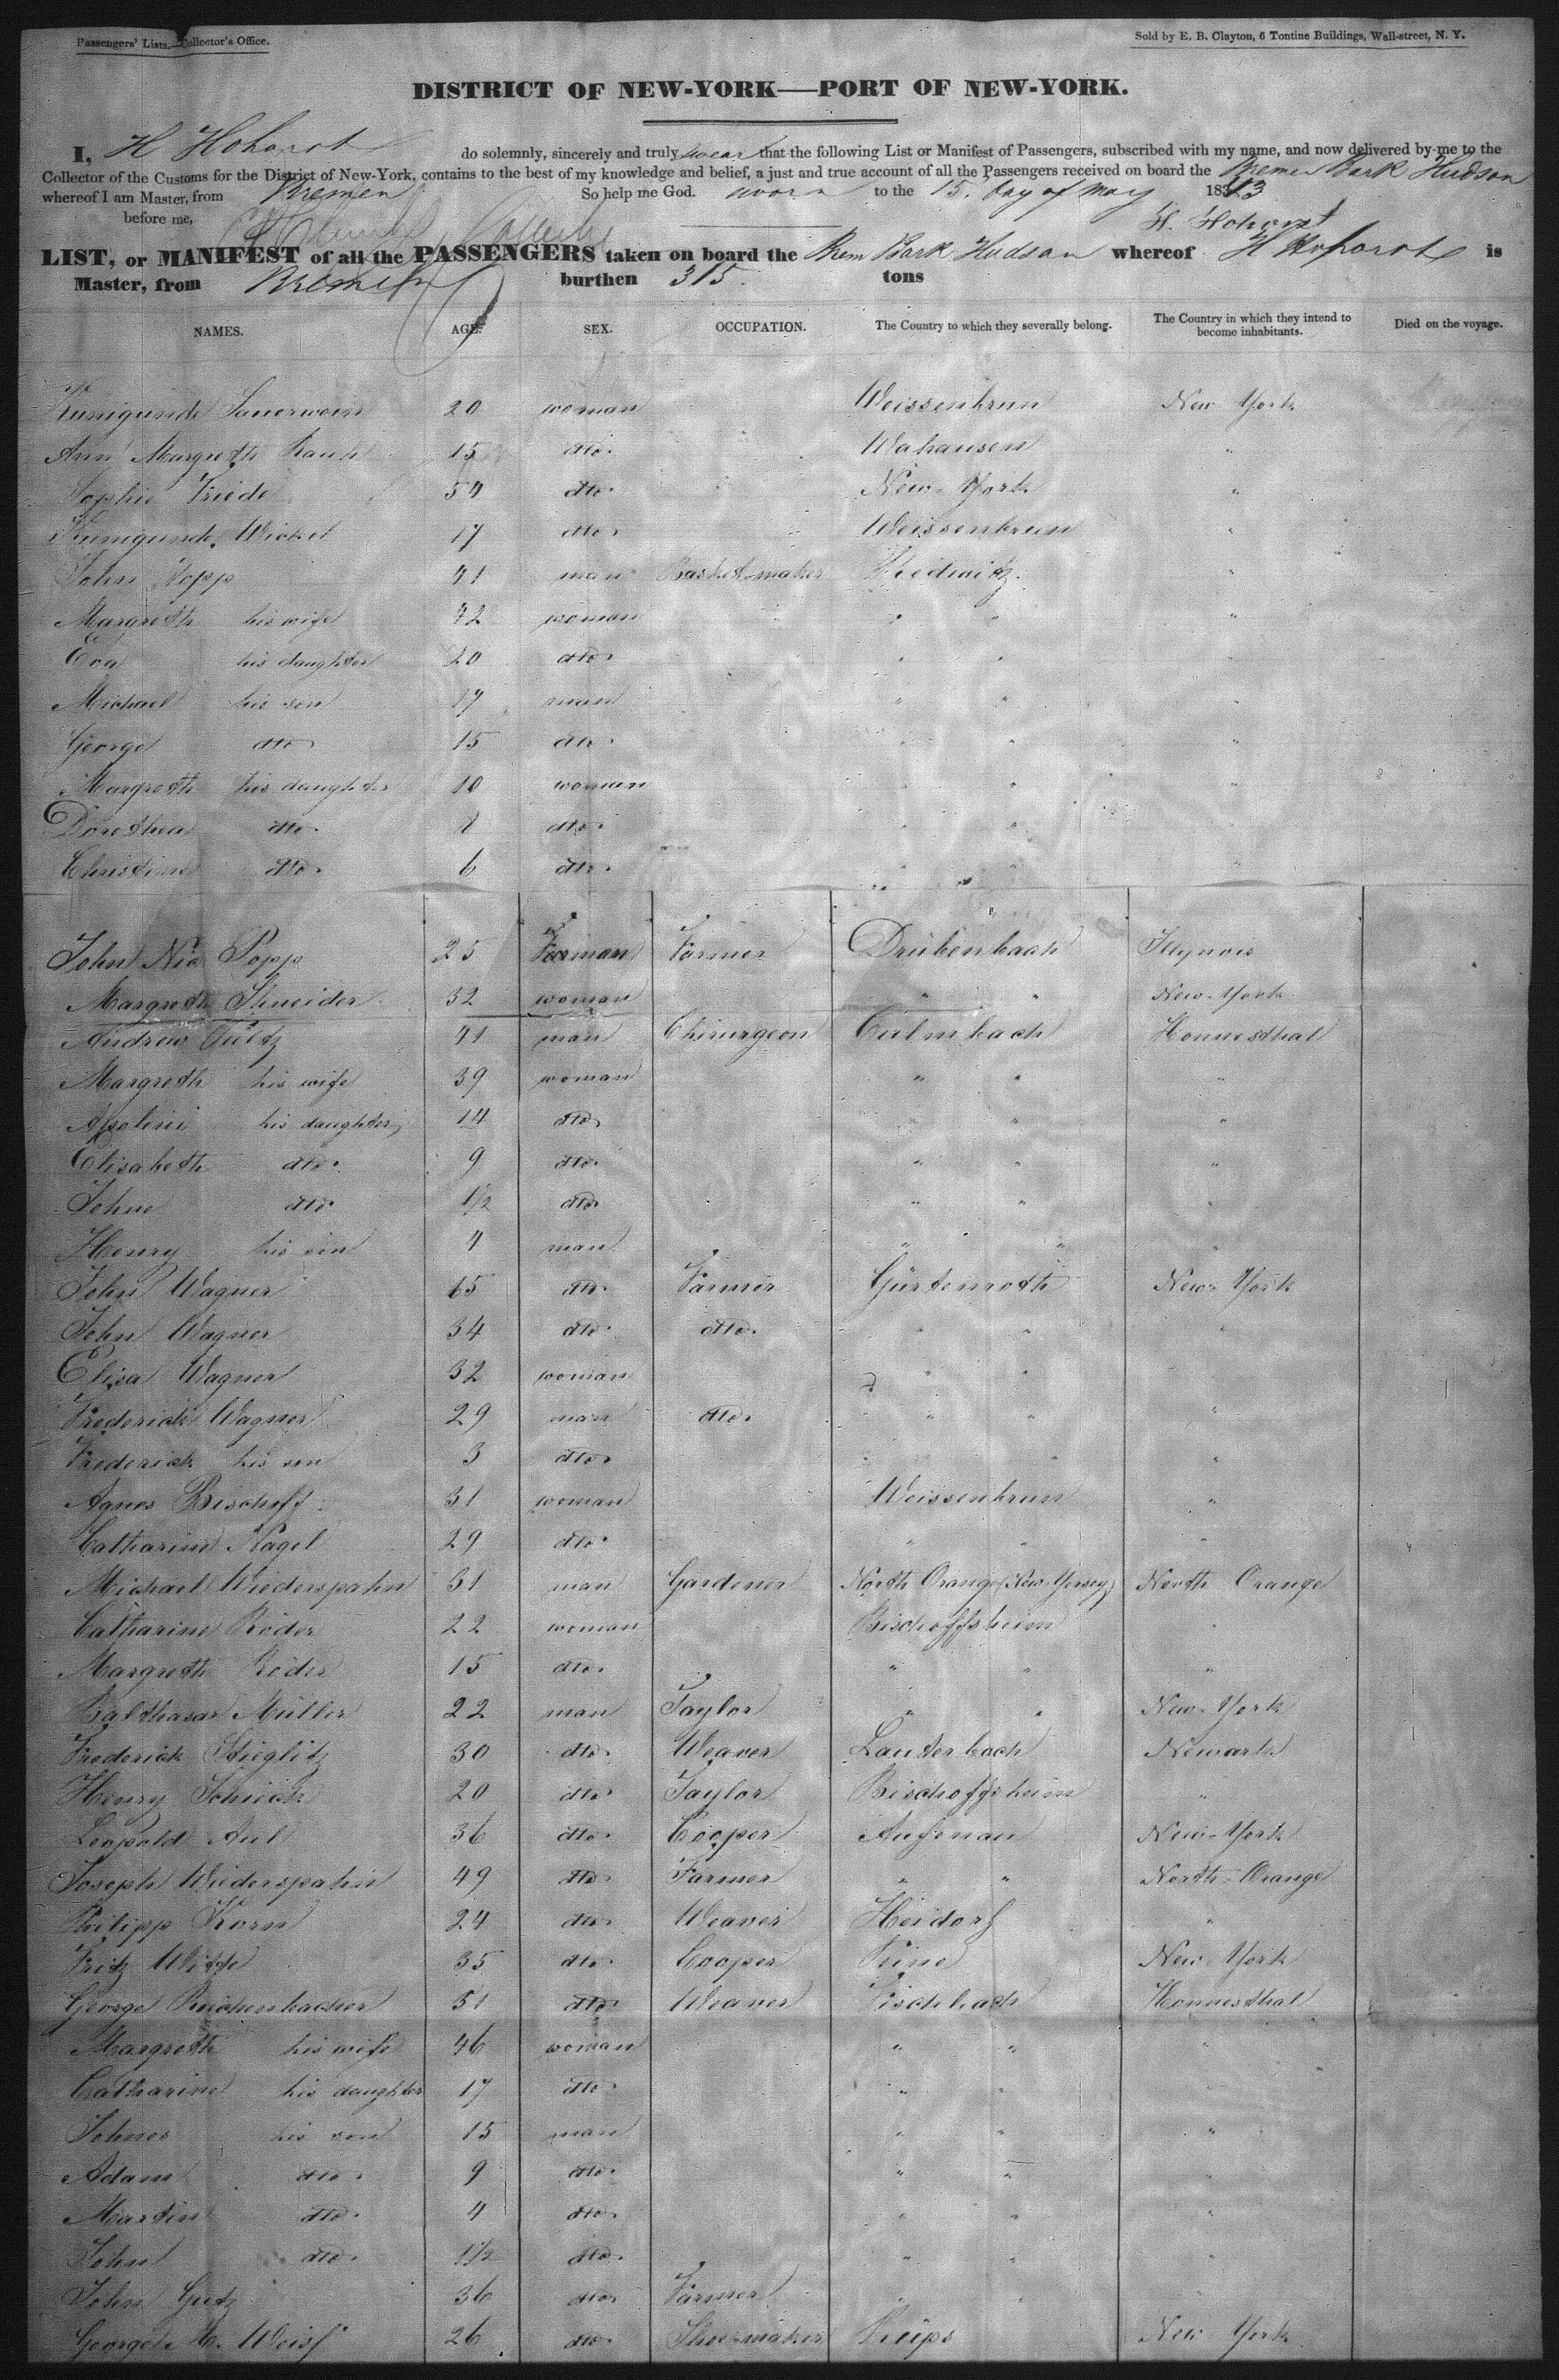 Passengers' Lists.—Collector's Office.
Sold by E. B. Clayton, 6 Tontine Buildings, Wall-street, N. Y.
DISTRICT OF NEW-YORK—PORT OF NEW-YORK.
I, H Hohorst do solemnly, sincerely and truly swear that the following List or Manifest of Passengers, subscribed with my name, and now delivered by me to the
Collector of the Customs for the District of New-York, contains to the best of my knowledge and belief, a just and true account of all the Passengers received on board the Bremen Bark Hudson
whereof I am Master, from Bremen So help me God. to the 15. day of May 183
H. Hohorst
before me,
LIST, or MANIFEST of all the PASSENGERS taken on board the Brem Bark Hudson whereof H Hohorst is
Master, from Bremen burthen 315. tons
NAMES. AGE. SEX. OCCUPATION. The Country to which they severally belong. The Country in which they intend to become inhabitants. Died on the voyage.
Kunigunde Sauerwein 20 woman Weissenbrun New York
Ann Margreth Rauh 15 dto. Wahausen "
Sophie Friede 54 dto. New-York "
Kunigunde Wickel 17 dto. Weissenbrun "
John Popp 41 man Basket-maker Redwitz "
Margreth his wife 42 woman " " "
Eva his daughter 20 dto. " " "
Michael his son 17 man " " "
George dto 15 dto. " " "
Margreth his daughter 10 woman " "
Dorothea dto. dto. " "
Christine dto. 6 dto. " " "
John Nic Popp 25 man Farmer Drübenbach Illynois
Margreth Shneider 32 woman " " New-York
Andrew 41 man Chirurgeon Culmbach Honnesthal
Margreth his wife 39 woman " " "
Apolini his daughter 14 dto. " " "
Elisabeth dto. 9 dto. " " "
Johne dto 1/2 dto. " " "
Henry his son 4 man " " "
John Wagner 65 dto. Farmer Gürtenroth New-York
John Wagner 34 dto. dto. " " "
Elisa Wagner 32 woman " "
Frederick Wagner 29 man dto. " " "
Frederick his son 3 dto. " " "
Agnes Bischoff 31 woman Weissenbrun "
Catharine Nagel 29 dto. " " "
Michael Wiederspahn 31 man Gardener North Orange (New-Yersey) North Orange
Catharine Röder 22 woman Bischoffsheim "
Margreth Röder 15 dto. " " "
Balthasar Müller 22 man Taylor " " New-York
Frederick Stieglitz 30 dto. Weaver Lauterbach Newark
Henry Schück 20 dto. Taylor Bischoffsheim "
Leopold Aul 36 dto. Cooper Aufenau New-York
Joseph Wiederspahn 49 dto. Farmer " " North-Orange
Philipp Korn 24 dto. Weaver Heidorf "
Fritz Witte 35 dto. Cooper Peine New-York
George Reichenbacher 51 dto. Weaver Fischbach Honnesthal
Margreth his wife 46 woman " " "
Catharine his daughter 17 dto. " " "
Johnes his son 15 man " " "
Adam dto. 9 dto. " " "
Martin dto. 4 dto. " " "
John dto. 1 1/2 dto. " " "
John Getz 36 dto. Farmer " " "
George H. Weiss 26 dto. Shoemaker Küps New York